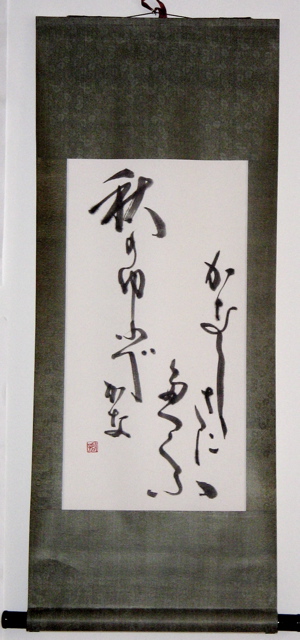 かなしさに
魚くふ
秋のゆふべかな